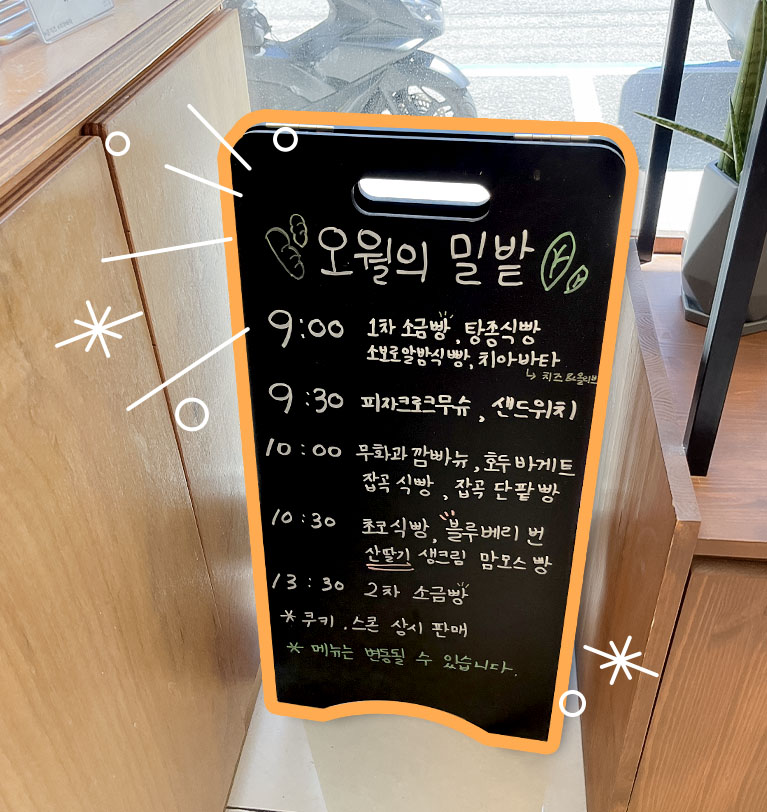 오월의 밀밭
9:00 1차 소금빵, 탕종식빵
소보로알밤식빵, 치아바타
↳ 치즈&올리브
9:30 피자크로크무슈, 샌드위치
10:00 무화과깜빠뉴, 호두바게트
잡곡식빵, 잡곡단팥빵
10:30 초코식빵, 블루베리 번
산딸기 생크림 맘모스빵
13:30 2차 소금빵
* 쿠키, 스콘 상시 판매
* 메뉴는 변동될 수 있습니다.